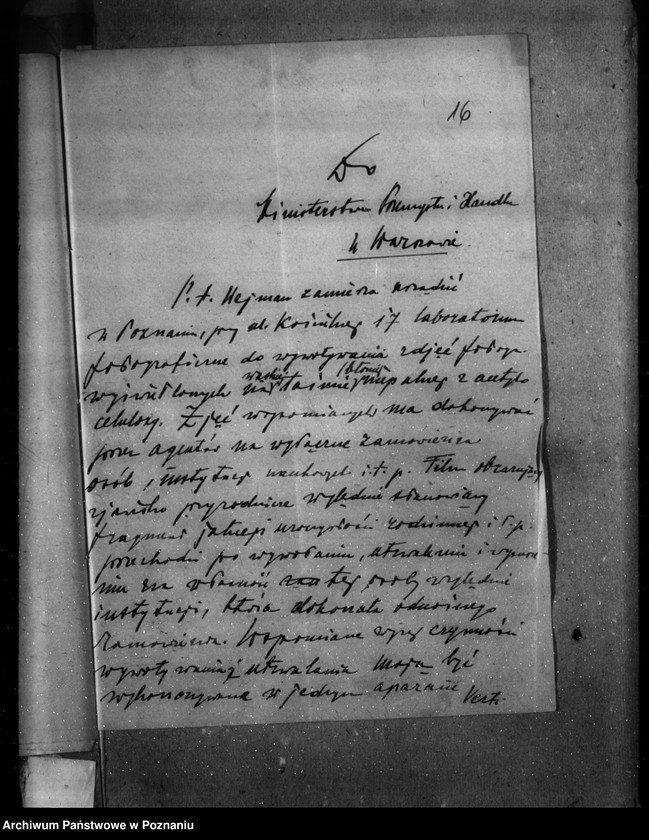 16
Do
Ministerstwa Przemysłu i Handlu
w Warszawie.
P. A. Hejman zamierza urządzić
w Poznaniu, przy ul. Kościelnej 17 laboratorium
fotograficzne do wywoływania zdjęć fotogr.
wyświetlonych na wąskiej taśmie /błonie/ niepalnej z acetylo
celulozy. Zdjęć wspomnianych ma dokonywać
przez agentów na wyłączne zamówienia
osób, instytucji naukowych i t. p. Film obrazujący
zjawisko przyrodnicze względnie stanowiący
fragment jakiejś uroczystości rodzinnej i t. p.
przechodzi po wywołaniu, utrwaleniu i
na własność tej osoby względnie
instytucji, która dokonała odnośnego
zamówienia. Wspomniane wyżej czynności
wywoływania i utrwalania mają być
wykonywane w jednym aparacie